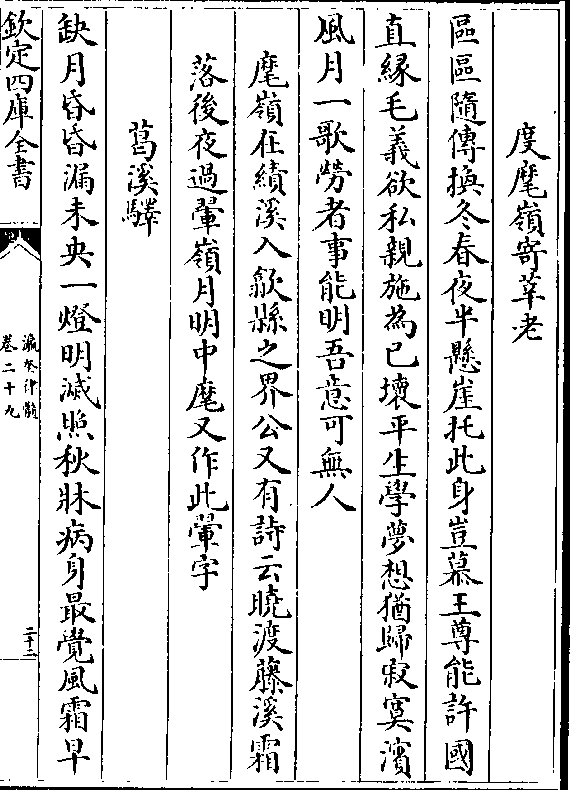 度麾嶺寄莘老
區區隨傳換冬春夜半懸崖托此身豈慕王尊能許國
直縁毛義欲私親施為已壞平生學夢想猶歸寂寞濱
風月一歌勞者事能明吾意可無人
麾嶺在績溪入歙縣之界公又有詩云曉渡藤溪霜
落後夜過翬嶺月明中麾又作此翬字
葛溪驛
缺月昏昏漏未央一燈明滅照秋牀病身最覺風霜早
欽定四庫全書
瀛奎律髓
卷二十九
二十二